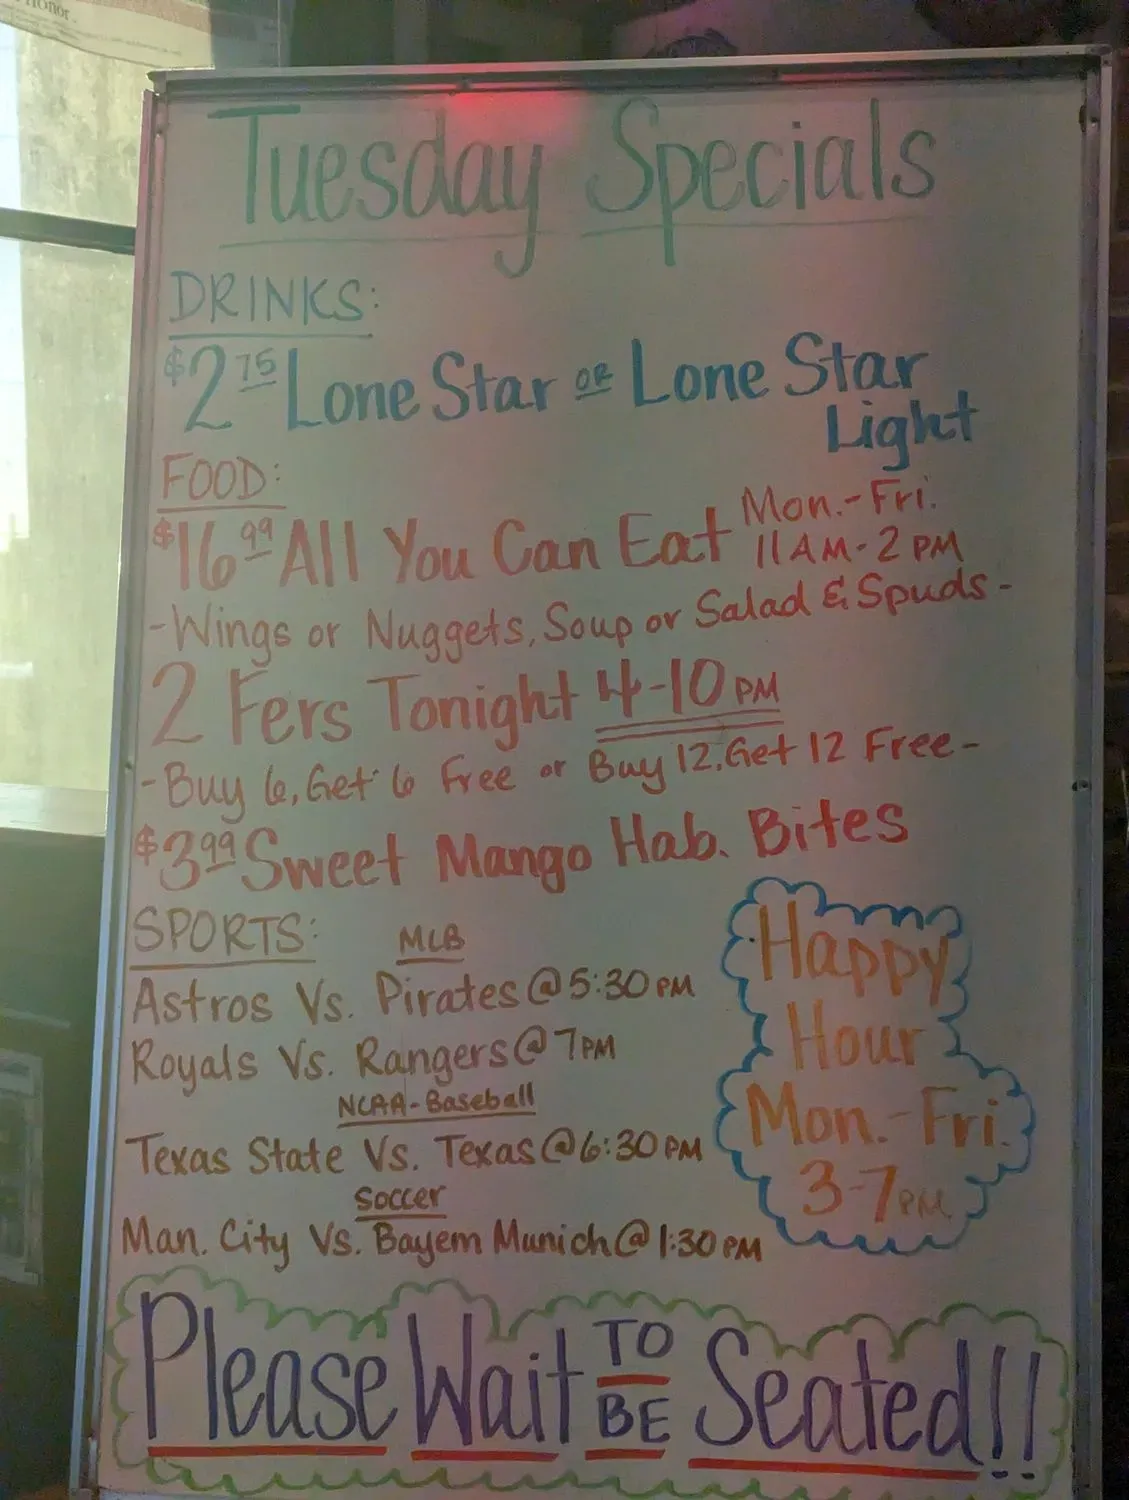 Honor.
Tuesday Specials
DRINKS:
$2.75 Lone Star or Lone Star
Light
FOOD:
$16.99 All You Can Eat Mon.-Fri. 11AM-2PM
-Wings or Nuggets, Soup or Salad & Spuds-
2 Fers Tonight 4-10PM
-Buy 6, Get 6 Free or Buy 12, Get 12 Free-
$3.99 Sweet Mango Hab. Bites
SPORTS:
MLB
Astros Vs. Pirates @ 5:30PM
Royals Vs. Rangers @ 7PM
NCAA-Baseball
Texas State Vs. Texas @ 6:30PM
Soccer
Man. City Vs. Bayem Munich @ 1:30PM
Happy
Hour
Mon.-Fri.
3-7PM
Please Wait TO BE Seated!!